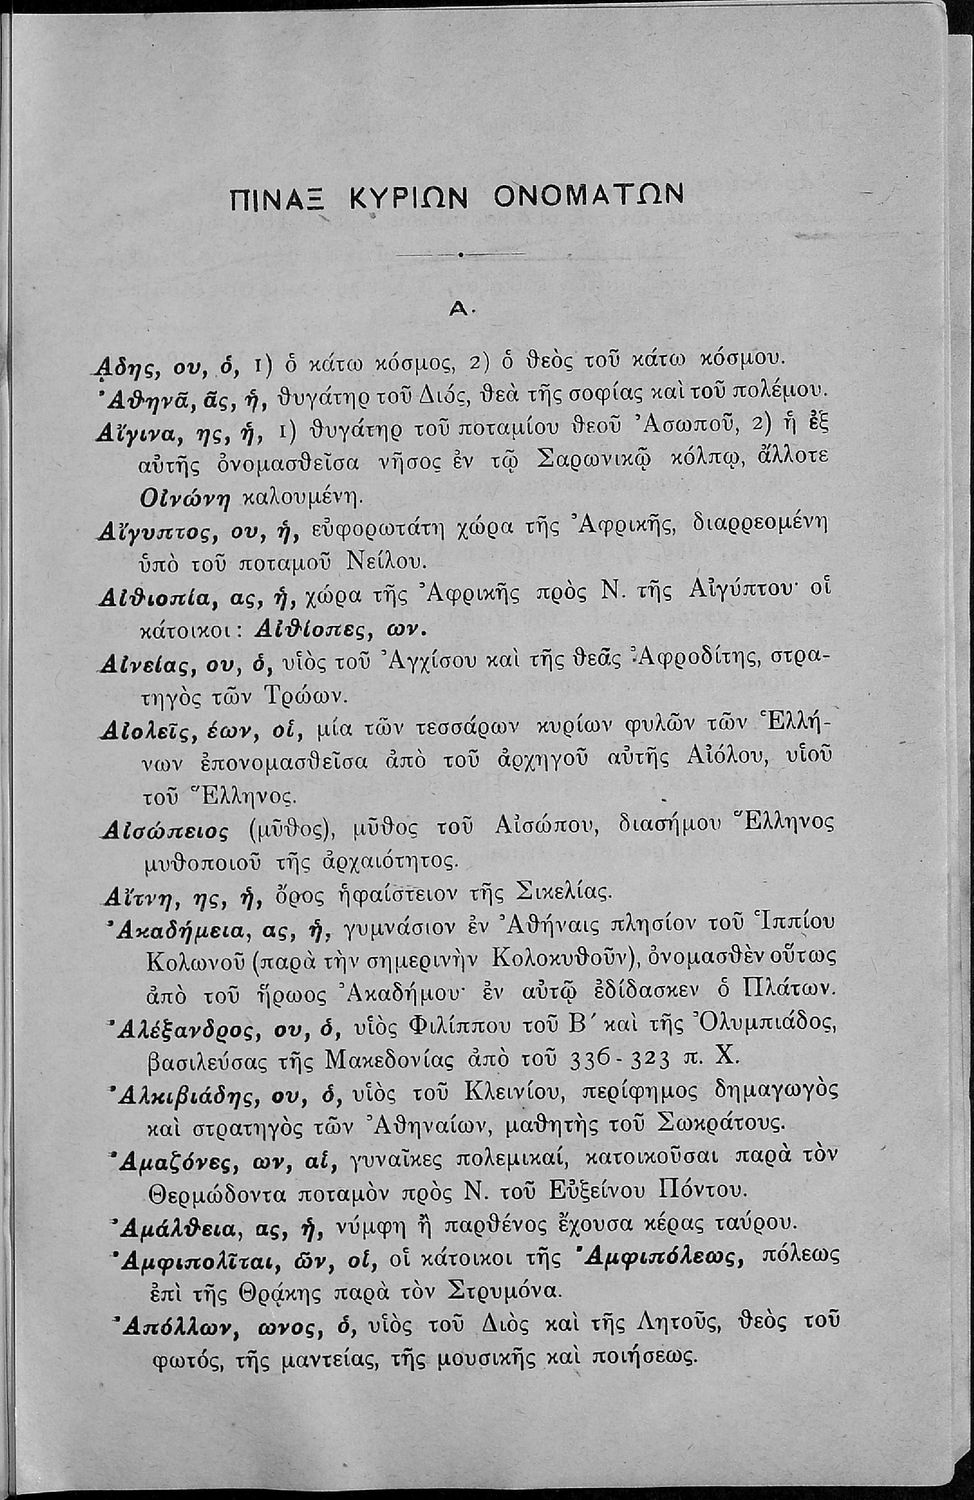 ΠΙΝΑΞ ΚΥΡΙΩΝ ΟΝΟΜΑΤΩΝ
Α.
ᾼδης, ου, ὁ, 1) ὁ κάτω κόσμος, 2) ὁ θεὸς τοῦ κάτω κόσμου.
Ἀθηνᾶ, ᾶς, ἡ, θυγάτηρ τοῦ Διός, θεὰ τῆς σοφίας καὶ τοῦ πολέμου.
Αἴγινα, ης, ἡ, 1) θυγάτηρ τοῦ ποταμίου θεοῦ Ἀσωποῦ, 2) ἡ ἐξ
αὐτῆς ὀνομασθεῖσα νῆσος ἐν τῷ Σαρωνικῷ κόλπῳ, ἄλλοτε
Οἰνώνη καλουμένη.
Αἴγυπτος, ου, ἡ, εὐφορωτάτη χώρα τῆς Ἀφρικῆς, διαρρεομένη
ὑπὸ τοῦ ποταμοῦ Νείλου.
Αἰθιοπία, ας, ἡ, χώρα τῆς Ἀφρικῆς πρὸς Ν. τῆς Αἰγύπτου· οἱ
κάτοικοι: Αἰθίοπες, ων.
Αἰνείας, ου, ὁ, υἱὸς τοῦ Ἀγχίσου καὶ τῆς θεᾶς Ἀφροδίτης, στρα-
τηγὸς τῶν Τρώων.
Αἰολεῖς, έων, οἱ, μία τῶν τεσσάρων κυρίων φυλῶν τῶν Ἑλλή-
νων ἐπονομασθεῖσα ἀπὸ τοῦ ἀρχηγοῦ αὐτῆς Αἰόλου, υἱοῦ
τοῦ Ἕλληνος.
Αἰσώπειος (μῦθος), μῦθος τοῦ Αἰσώπου, διασήμου Ἕλληνος
μυθοποιοῦ τῆς ἀρχαιότητος.
Αἴτνη, ης, ἡ, ὄρος ἡφαίστειον τῆς Σικελίας.
Ἀκαδήμεια, ας, ἡ, γυμνάσιον ἐν Ἀθήναις πλησίον τοῦ Ἱππίου
Κολωνοῦ (παρὰ τὴν σημερινὴν Κολοκυθοῦν), ὀνομασθὲν οὕτως
ἀπὸ τοῦ ἥρωος Ἀκαδήμου· ἐν αὐτῷ ἐδίδασκεν ὁ Πλάτων.
Ἀλέξανδρος, ου, ὁ, υἱὸς Φιλίππου τοῦ Β΄ καὶ τῆς Ὀλυμπιάδος,
βασιλεύσας τῆς Μακεδονίας ἀπὸ τοῦ 336 - 323 π. Χ.
Ἀλκιβιάδης, ου, ὁ, υἱὸς τοῦ Κλεινίου, περίφημος δημαγωγὸς
καὶ στρατηγὸς τῶν Ἀθηναίων, μαθητὴς τοῦ Σωκράτους.
Ἀμαζόνες, ων, αἱ, γυναῖκες πολεμικαί, κατοικοῦσαι παρὰ τὸν
Θερμώδοντα ποταμὸν πρὸς Ν. τοῦ Εὐξείνου Πόντου.
Ἀμάλθεια, ας, ἡ, νύμφη ἢ παρθένος ἔχουσα κέρας ταύρου.
Ἀμφιπολῖται, ῶν, οἱ, οἱ κάτοικοι τῆς Ἀμφιπόλεως, πόλεως
ἐπὶ τῆς Θρᾴκης παρὰ τὸν Στρυμόνα.
Ἀπόλλων, ωνος, ὁ, υἱὸς τοῦ Διὸς καὶ τῆς Λητοῦς, θεὸς τοῦ
φωτός, τῆς μαντείας, τῆς μουσικῆς καὶ ποιήσεως.